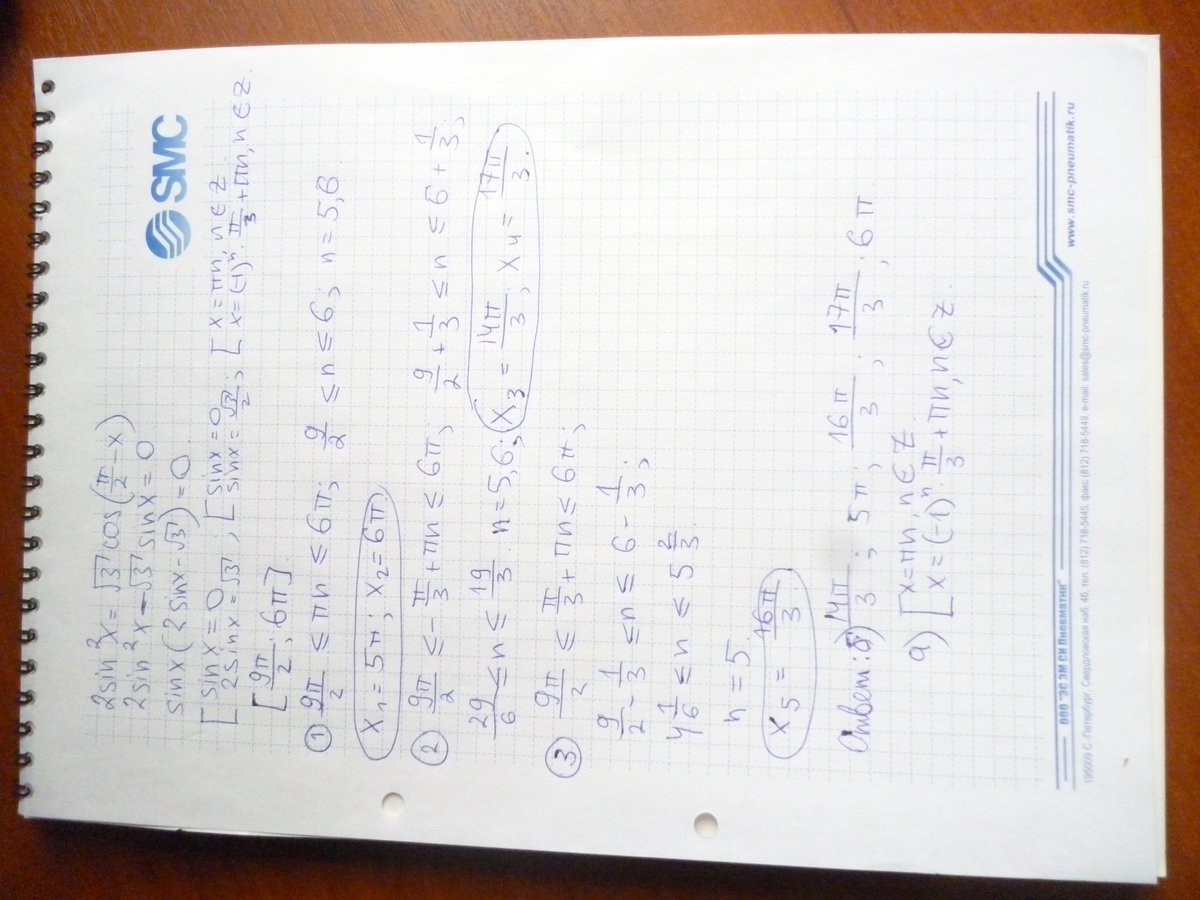 SMC
2sin²x = √3 cos(π/2 - x)
2sin²x - √3 sinx = 0
sinx(2sinx - √3) = 0.
[ sinx = 0; 2sinx = √3; [ sinx = 0; sinx = √3/2; [ x = πn, n∈Z; x = (-1)ⁿ · π/3 + πn, n∈Z.
[9π/2; 6π]
① 9π/2 ≤ πn ≤ 6π; 9/2 ≤ n ≤ 6; n = 5,6.
x₁ = 5π; x₂ = 6π.
② 9π/2 ≤ -π/3 + πn ≤ 6π; 9/2 + 1/3 ≤ n ≤ 6 + 1/3;
29/6 ≤ n ≤ 19/3. n = 5,6; x₃ = 14π/3; x₄ = 17π/3.
③ 9π/2 ≤ π/3 + πn ≤ 6π;
9/2 - 1/3 ≤ n ≤ 6 - 1/3;
4 1/6 ≤ n ≤ 5 2/3.
n = 5.
x₅ = 16π/3.
Ответ: б) 14π/3; 5π; 16π/3; 17π/3; 6π.
а) [ x = πn, n∈Z
x = (-1)ⁿ · π/3 + πn, n∈Z.
ООО "ЭС ЭМ СИ Пневматик" www.smc-pneumatik.ru
195009 С.-Петербург, Свердловская наб. 4б, тел. (812) 718-5445, факс (812) 718-5449, e-mail: sales@smc-pneumatik.ru